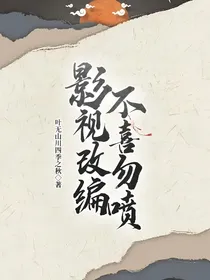 影视改编
不喜勿喷
叶无山川四季之秋◎著